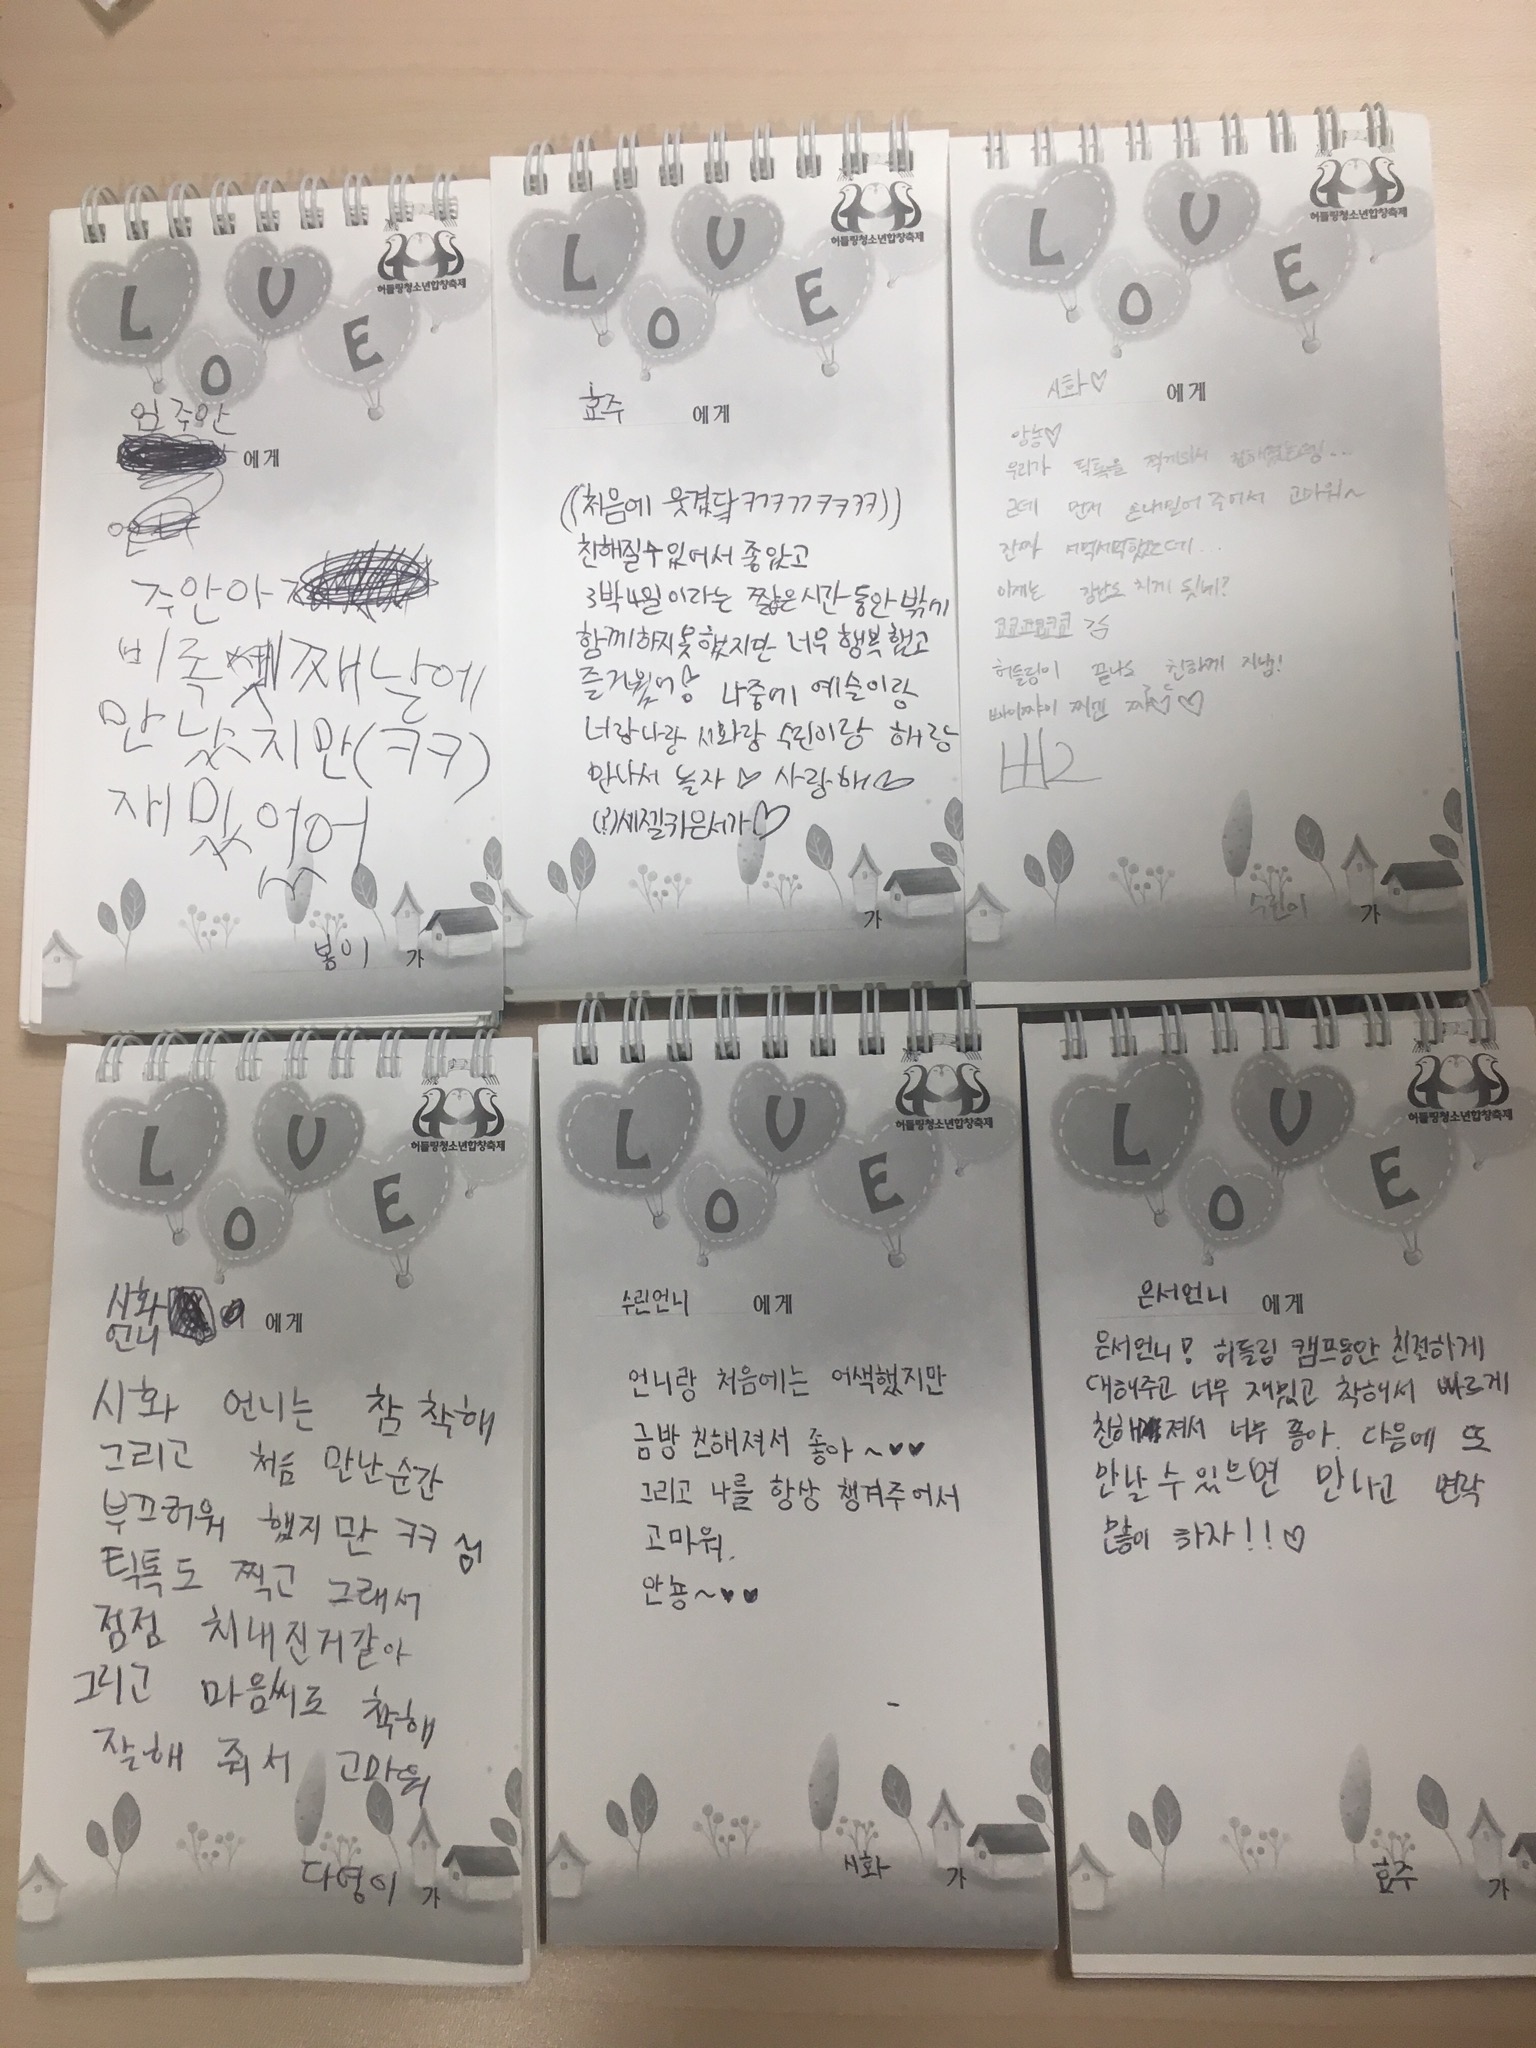 LOVE
허들링청소년합창축제
임주안
에게
주안아
비록 째날에
만났지만(ㅋㅋ)
재밌었어
봄이 가
LOVE
허들링청소년합창축제
효주 에게
((처음에 웃겼닼ㅋㅋㅋㅋㅋㅋㅋ))
친해질수있어서 좋았고
3박4일이라는 짧은시간동안밖에
함께하지못했지만 너무 행복했고
즐거웠어! 나중에 예슬이랑
너랑나랑 시화랑 수린이랑 해랑
만나서 놀자♡ 사랑해♡
세젤귀은서가♡
가
LOVE
허들링청소년합창축제
시화♡ 에게
앙뇽♡
우리가 틱톡을 찍게되서 친해졌는뎅...
근데 먼저 손내밀어주어서 고마워~
진짜 서먹서먹했는데...
이제는 장난도 치게 됫네?
허들링이 끝나도 친하게 지냄!
빠이
수린이 가
LOVE
허들링청소년합창축제
시화
언니 에게
시화 언니는 참 착해
그리고 처음 만난순간
부끄허워 했지만 ㅋㅋ
틱톡도 찍고 그래서
점점 치내진거같아
그리고 마음씨도 착해
잘해 줘서 고마워
다영이 가
LOVE
허들링청소년합창축제
수린언니 에게
언니랑 처음에는 어색했지만
금방 친해져서 좋아~♥♥
그리고 나를 항상 챙겨주어서
고마워.
안뇽~♥♥
시화 가
LOVE
허들링청소년합창축제
은서언니 에게
은서언니! 허들링 캠프동안 친절하게
대해주고 너무 재밌고 착해서 빠르게
친해져서 너무 좋아. 다음에 또
만날 수 있으면 만나고 연락
많이 하자!!♡
효주 가